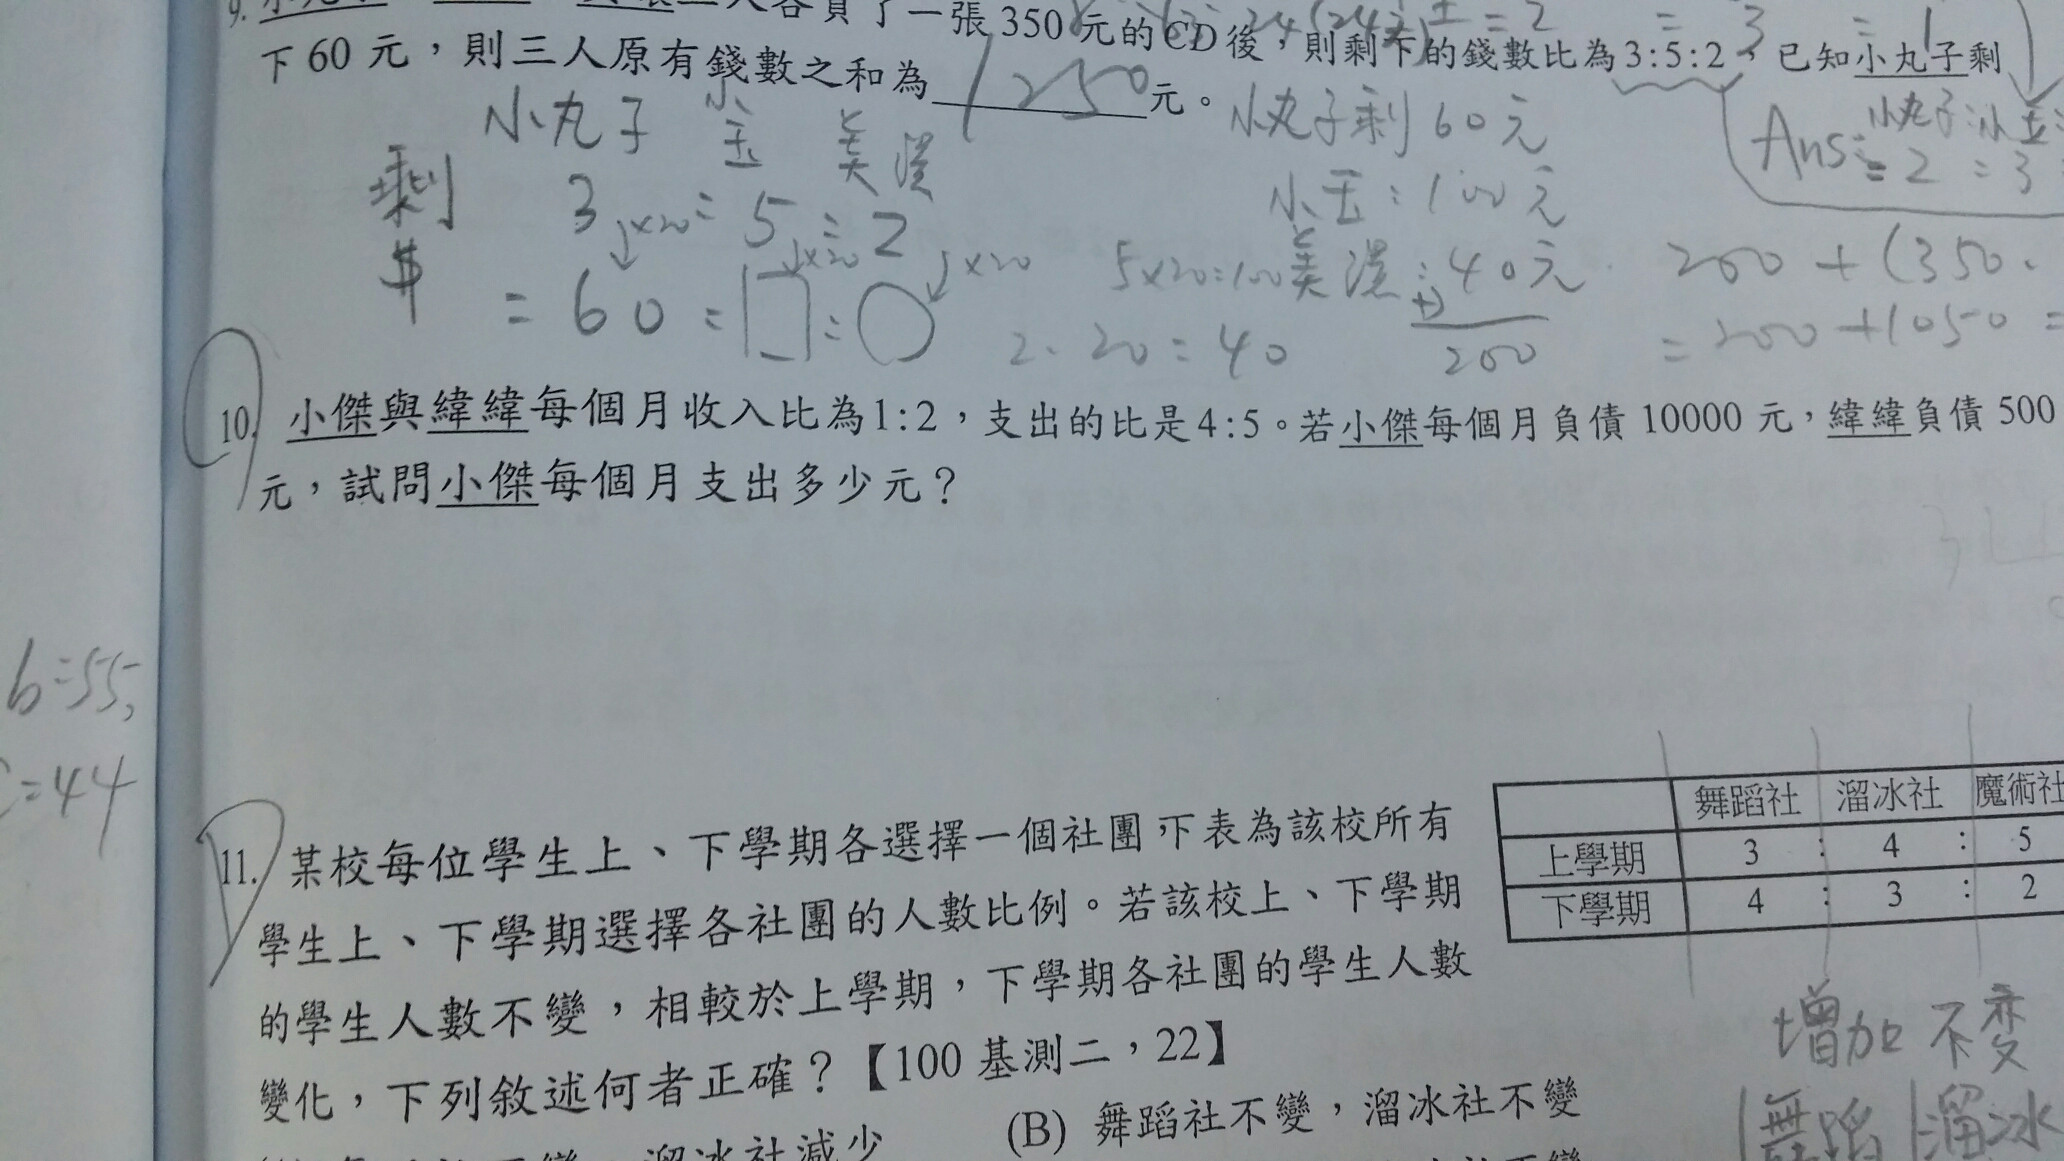 9.
三人各買了一張350元的CD後，則剩下的錢數比為3:5:2，已知小丸子剩
下60元，則三人原有錢數之和為1250元。
小丸子 小玉 美環
剩$ 3 : 5 : 2
×20 ×20 ×20
= 60 : □ : ○
小丸子剩60元
小玉:100元
5×20=100 美環:40元
2·20=40
200
Ans: 小丸子:小玉:
=2:3
200+(350·
=200+1050=
10. 小傑與緯緯每個月收入比為1:2，支出的比是4:5。若小傑每個月負債10000元，緯緯負債500
元，試問小傑每個月支出多少元？
b=55,
=44
11. 某校每位學生上、下學期各選擇一個社團，下表為該校所有
學生上、下學期選擇各社團的人數比例。若該校上、下學期
的學生人數不變，相較於上學期，下學期各社團的學生人數
變化，下列敘述何者正確？【100基測二，22】
舞蹈社 溜冰社 魔術社
上學期 3 : 4 : 5
下學期 4 : 3 : 2
增加 不变
舞蹈 溜冰
溜冰社減少
(B) 舞蹈社不變，溜冰社不變